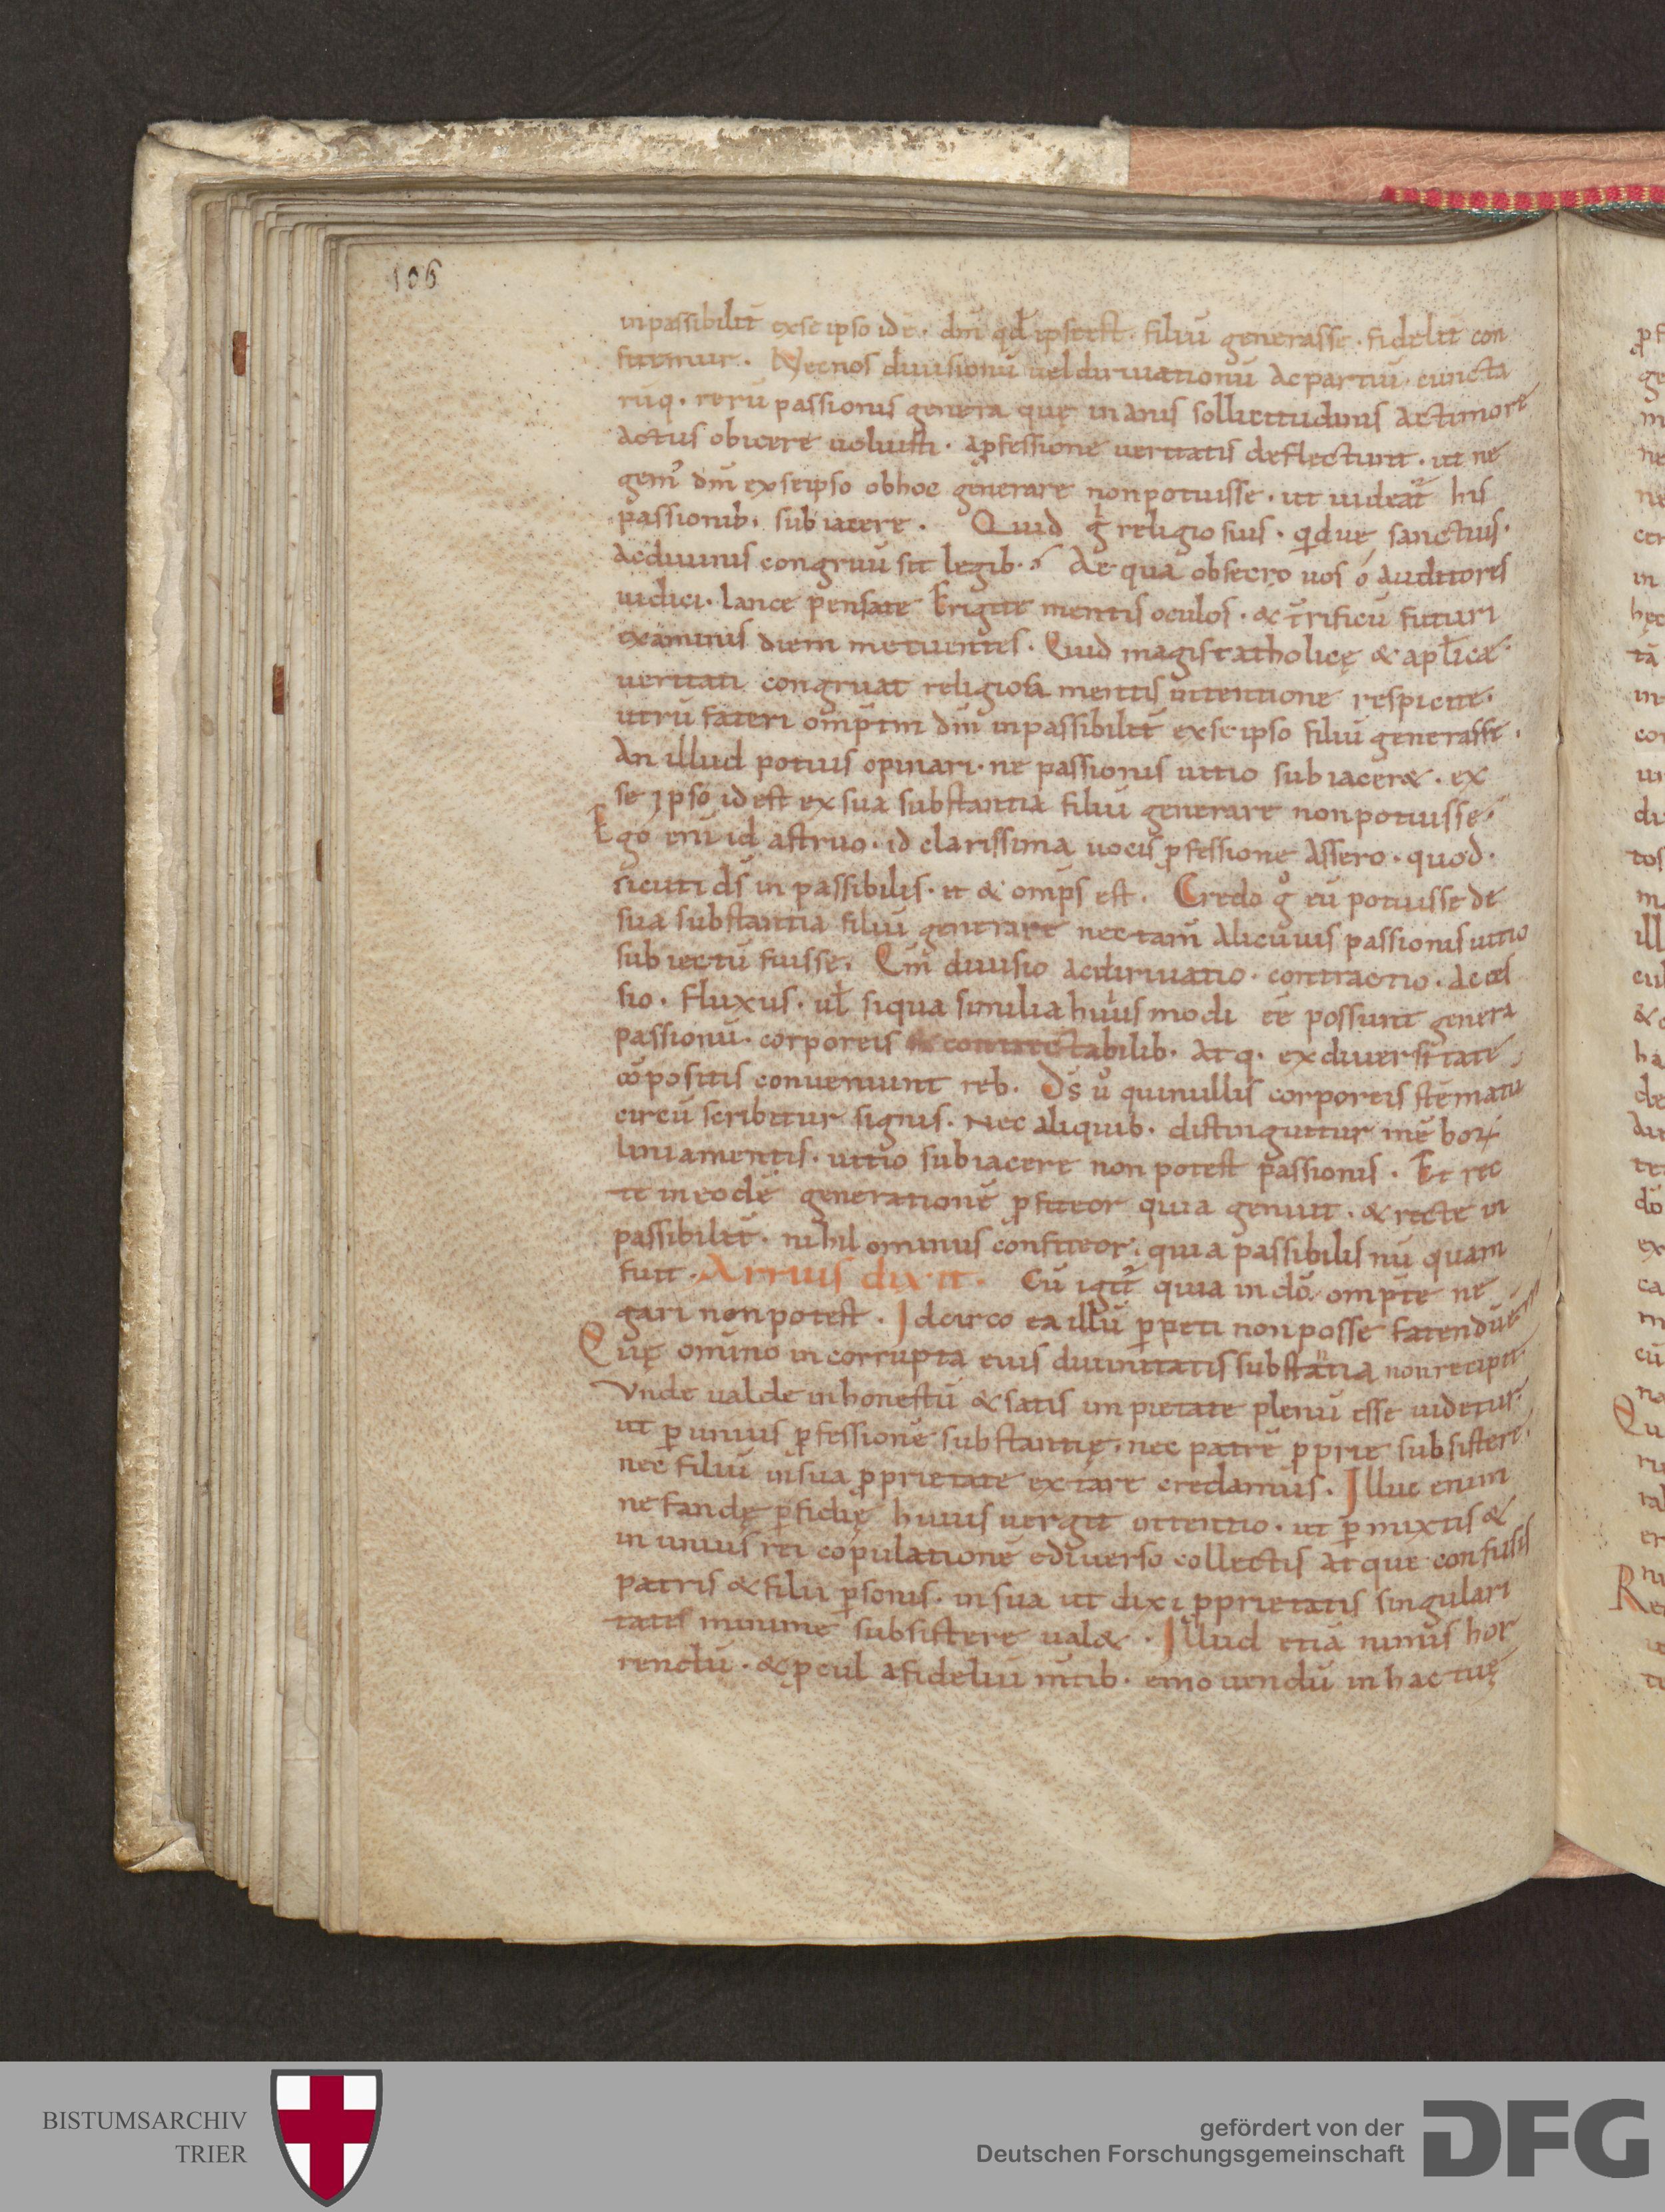 106
inpassibilit̄ exseipso id ē · dm̄ qd̄ ipse est · filiū generasse · fidelit̄ con
fitemur · Nec nos diuisionū uel diriuationū ac partiū · cuncta
rūq · rerū passionis genera quę inanis sollicitudinis ac timoris
actus obicere uoluisti · a p̄fessione ueritatis deflectunt · ut ne
gem̄ dm̄ ex seipso ob hoc generare non potuisse · ut uideat̄ his
passionib · subiacere · Quid g̊ religiosius · qidue sanctius ·
ac diuinis congruū sit legib · Aequa obsecro uos ó auditores
iudici · lance pensate Erigite mentis oculos · & t̄rificū futuri
examinis diem metuentes · Quid magis catholicę & apl̄icę
ueritati congruat religiosa mentis intentione respicite ·
utrū fateri omp̄tm dm̄ inpassibilit̄ exseipso filiū generasse ·
An illud potius opinari · ne passionis uitio subiacer& · ex
se ipso id est ex sua substantia filiū generare non potuisse ·
Ego eni id astruo · id clarissima uocis p̄fessione assero · quod ·
sicuti ds̄ inpassibilis · it & omp̄s est · Credo g̊ eū potuisse de
sua substantia filiū generare nec tam̄ alicuius passionis uitio
subiectū fuisse · Qm̄ diuisio ac diriuatio · contractio · ac ces
sio · fluxus · ul̄ siqua similia huiusmodi eē possunt genera
passionū · corporeis contrectabilib · atq · ex diuersitate
cōpositis conueniunt reb · Ds̄ ů qui nullis corporeis stēmatū
circū scribitur signis · nec aliquib · distinguitur mēborꝝ
liniamentis · uitio subiacere non potest passionis · Et rec
te in eodē generationē p̄fiteor quia genuit · & recte in
passibilit̄ · nihilominus confiteor · quia passibilis nū quam
fuit · Arrius dixit · Cū igit̄ quia in dō omp̄te ne
gari non potest · Idcirco ea illū p̄peti non posse fatendū est
Quę omīno incorrupta eius diuinitatis substātia non recipit
Vnde ualde inhonestū & satis impietate plenū esse uidetur ·
ut p̄ unius p̄fessionē substantię · nec patrē p̄prie subsistere ·
nec filiū in sua p̄prietate extare credamus · Illuc enim
nefandę p̄fidię huius uergit intentio · ut p̄mixtis &
in unius rei copulationē e diuerso collectis atque confusis
patris & filii p̄sonis · in sua ut dixi p̄prietatis singulari
tatis minime subsistere ual& · Illud etiā nimis hor
rendū · & p̄cul a fideliū m̄tib · emouendū in hac tuę
BISTUMSARCHIV
TRIER
gefördert von der
Deutschen Forschungsgemeinschaft
DFG